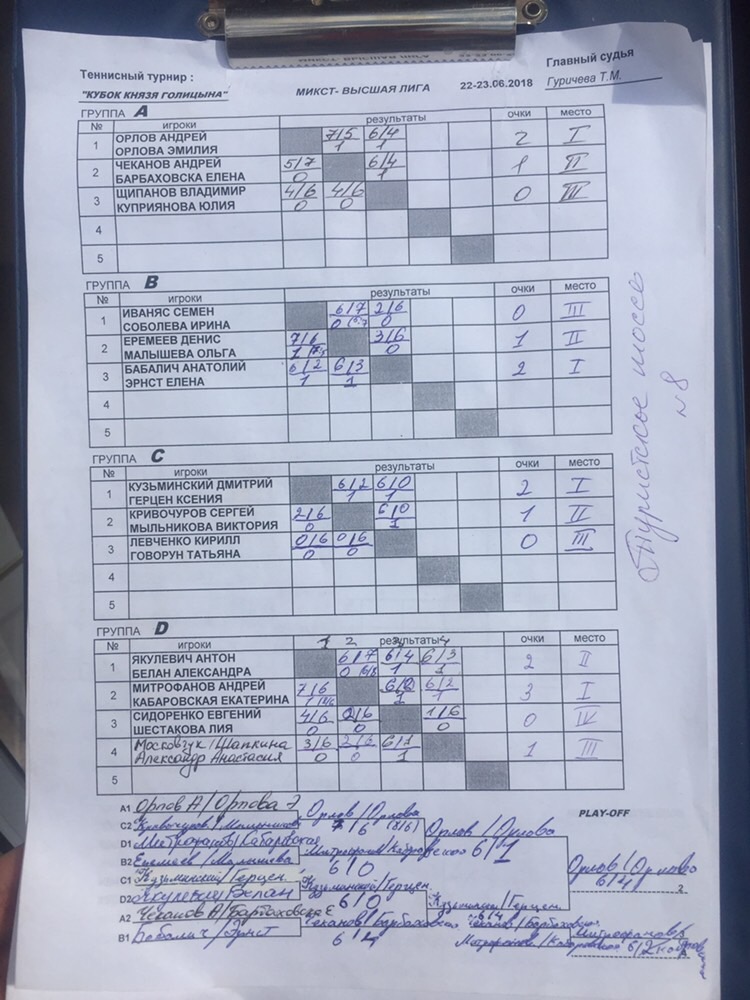 Теннисный турнир :
"КУБОК КНЯЗЯ ГОЛИЦЫНА"
МИКСТ- ВЫСШАЯ ЛИГА
22-23.06.2018
Главный судья
Гуричева Т.М.
ГРУППА A
№ игроки результаты очки место
1 ОРЛОВ АНДРЕЙ 7/5 6/4 2 I
ОРЛОВА ЭМИЛИЯ 1 1
2 ЧЕКАНОВ АНДРЕЙ 5/7 6/4 1 II
БАРБАХОВСКА ЕЛЕНА 0 1
3 ЩИПАНОВ ВЛАДИМИР 4/6 4/6 0 III
КУПРИЯНОВА ЮЛИЯ 0 0
4
5
ГРУППА B
№ игроки результаты очки место
1 ИВАНЯС СЕМЕН 6/7 2/6 0 III
СОБОЛЕВА ИРИНА 0 0
2 ЕРЕМЕЕВ ДЕНИС 7/6 3/6 1 II
МАЛЫШЕВА ОЛЬГА 1 0
3 БАБАЛИЧ АНАТОЛИЙ 6/2 6/3 2 I
ЭРНСТ ЕЛЕНА 1 1
4
5
ГРУППА C
№ игроки результаты очки место
1 КУЗЬМИНСКИЙ ДМИТРИЙ 6/2 6/0 2 I
ГЕРЦЕН КСЕНИЯ 1 1
2 КРИВОЧУРОВ СЕРГЕЙ 2/6 6/0 1 II
МЫЛЬНИКОВА ВИКТОРИЯ 0 1
3 ЛЕВЧЕНКО КИРИЛЛ 0/6 0/6 0 III
ГОВОРУН ТАТЬЯНА 0 0
4
5
ГРУППА D
№ игроки результаты очки место
1 2 3 4
1 ЯКУЛЕВИЧ АНТОН 6/7 6/4 6/3 2 II
БЕЛАН АЛЕКСАНДРА 0 1 1
2 МИТРОФАНОВ АНДРЕЙ 7/6 6/2 6/2 3 I
КАБАРОВСКАЯ ЕКАТЕРИНА 1 1
3 СИДОРЕНКО ЕВГЕНИЙ 4/6 2/6 1/6 0 IV
ШЕСТАКОВА ЛИЯ 0 0 0
4 Московчук/Шапкина 3/6 2/6 6/1 1 III
Александр Анастасия 0 0 1
5
Туристское шоссе
№8
PLAY-OFF
A1 Орлов А/Орлова Э
C2 Кривочуров/Мыльникова
Орлов/Орлова
7/6 (8/6)
D1 Митрофанов/Кабаровская
B2 Еремеев/Малышева
Митрофанов/Кабаровская
6/0
Орлов/Орлова
6/1
C1 Кузьминский/Герцен
D2 Якулевич/Белан
Кузьминский/Герцен
6/0
A2 Чеканов А/Барбаховска Е
B1 Бабалич/Эрнст
Чеканов/Барбаховска
6/4
Кузьминский/Герцен
6/4
Орлов/Орлова
6/4
2
Чеканов/Барбаховска
Митрофанов/Кабаровская 6/2